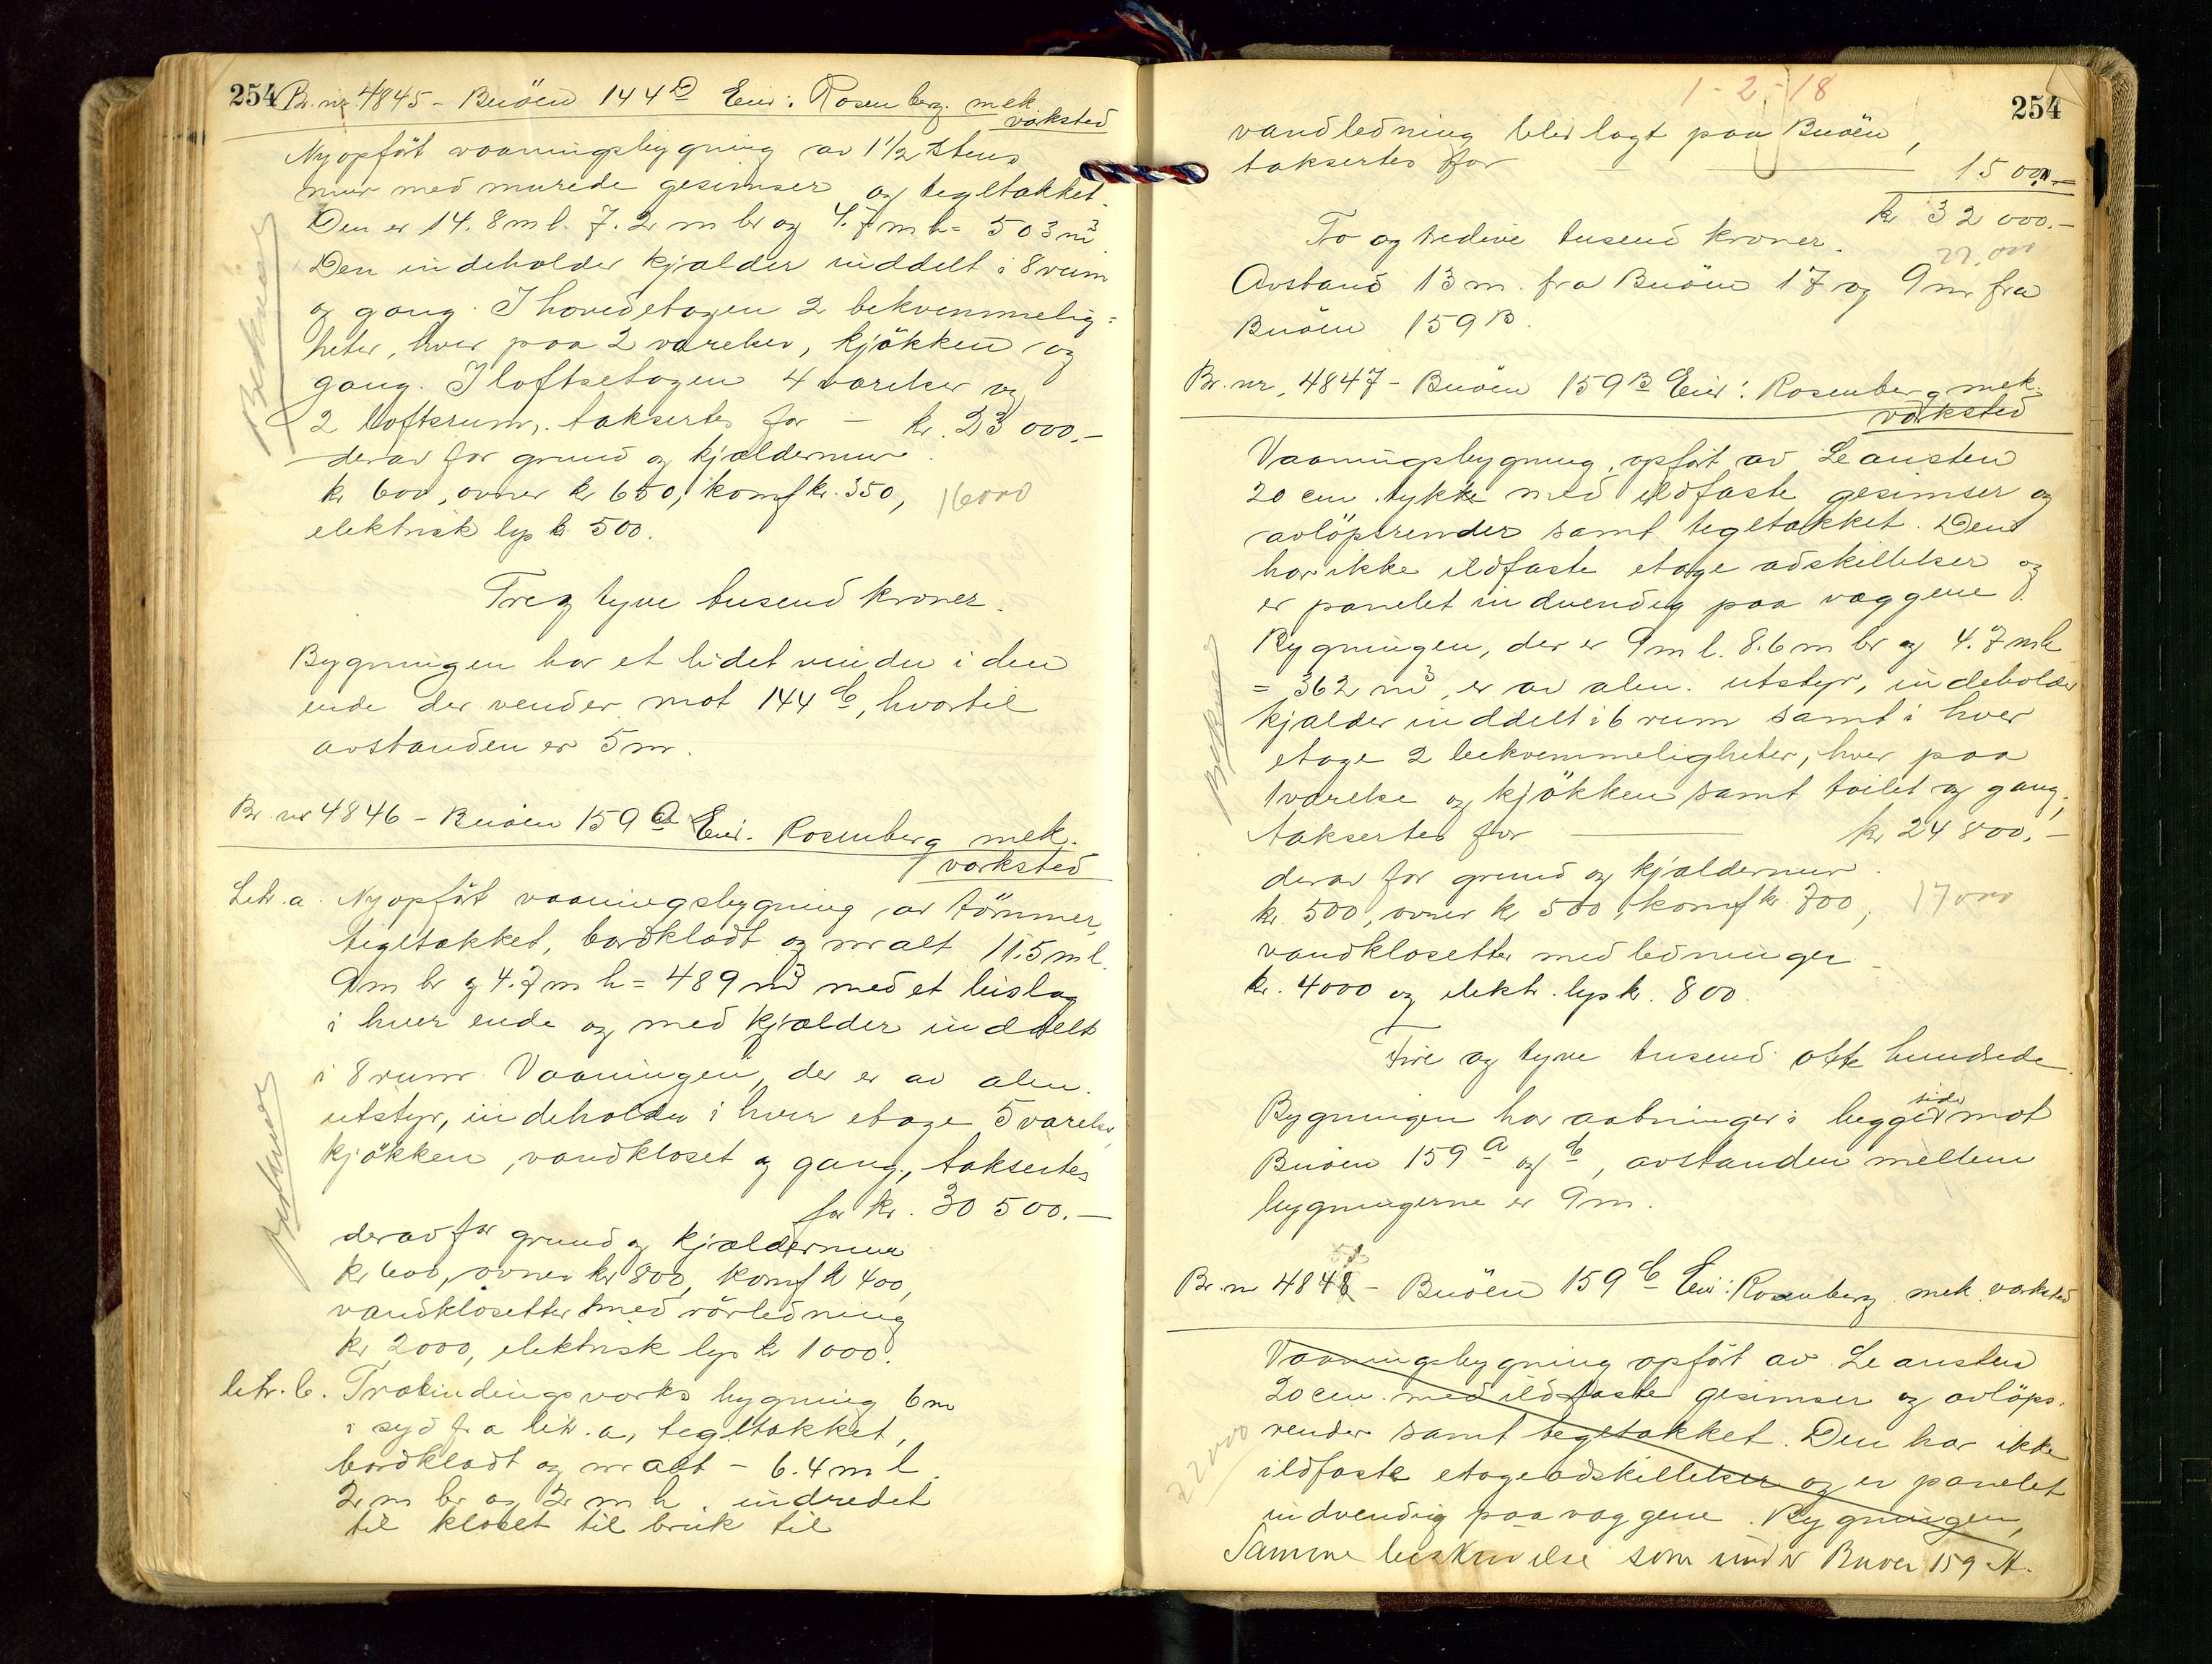 254 Br. nr. 4845 - Buöen 144 D Eier: Rosenberg mek.
værksted
Nyopfört vaaningsbygning av 1 1/2 stens
mur med murede gesimser og tegltækket.
Den er 14.8 m l. 7.2 m br og 4.7 m h = 503 m3
Den indeholder kjælder inddelt i 8 rum
og gang. I hovedetagen 2 bekvemmelig=
heter, hver paa 2 værelser, kjökken og
gang. I loftsetagen 4 værelser og
2 loftsrum, taksertes for - kr. 23 000.-
derav for grund og kjældermur
kr 600, ovner kr 650, komf kr. 350, 16000
elektrisk lys kr 500.
Tre og tyve tusend kroner.
Bygningen har et lidet vindu i den
ende der vender mot 144 C, hvortil
avstanden er 5 m.
Br. nr 4846 - Buöen 159 A Eier. Rosenberg mek.
værksted
Litr. a. Nyopfört vaaningsbygning av tömmer,
tegltækket, bordklædt og malt 11.5 m l.
9 m br og 4.7 m h = 489 m3 med et bislag
i hver ende og med kjælder inddelt
i 8 rum. Vaaningen, der er av alm.
utstyr, indeholder i hver etage 5 værelser,
kjökken, vandkloset og gang, taksertes
for kr. 30 500.-
derav for grund og kjældermur
kr 600, ovner kr 800, komf kr 400,
vandklosetter med rörledning
kr 2000, elektrisk lys kr 1000.
litr. b. Træbindingsverks bygning 6 m
i syd fra litr. a, tegltækket,
bordklædt og malt - 6.4 m l.
2 m br og 2 m h. indredet
til kloset til bruk til
1-2-18
254
vandledning blev lagt paa Buöen,
taksertes for 1500.-
kr 32 000.-
To og tredive tusend kroner.
22.000
Avstand 13 m. fra Buöen 17 og 9 m fra
Buöen 159 B.
Br. nr. 4847 - Buöen 159 B Eier: Rosenberg mek.
værksted
Vaaningsbygning, opfört av Leansten
20 cm. tykke med ildfaste gesimser og
avlöpsrender samt tegltækket. Den
har ikke ildfaste etage adskillelser og
er panelet indvendig paa væggene.
Bygningen, der er 9 m l. 8.6 m br og 4.7 m h
= 362 m3, er av alm. utstyr, indeholder
kjælder inddelt i 6 rum samt i hver
etage 2 bekvemmeligheter, hver paa
1 værelse og kjökken samt toilet og gang,
taksertes for kr 24 800.-
derav for grund og kjældermur
kr. 500, ovner kr 500, komf kr 700, 17000
vandklosetter med ledninger
kr. 4000 og elektr. lys kr. 800.
Fire og tyve tusend otte hundrede.
Bygningen har aabninger i begge sider mot
Buöen 159 A og C, avstanden mellem
bygningerne er 9 m.
Br. nr 4848 - Buöen 159 C Eier: Rosenberg mek værksted
Vaaningsbygning opfört av Leansten
20 cm. med ildfaste gesimser og avlöps.
render samt tegltækket. Den har ikke
22000
ildfaste etageadskillelser og er panelet
indvendig paa væggene. Bygningen,
Samme beskrivelse som under Buöen 159 A.